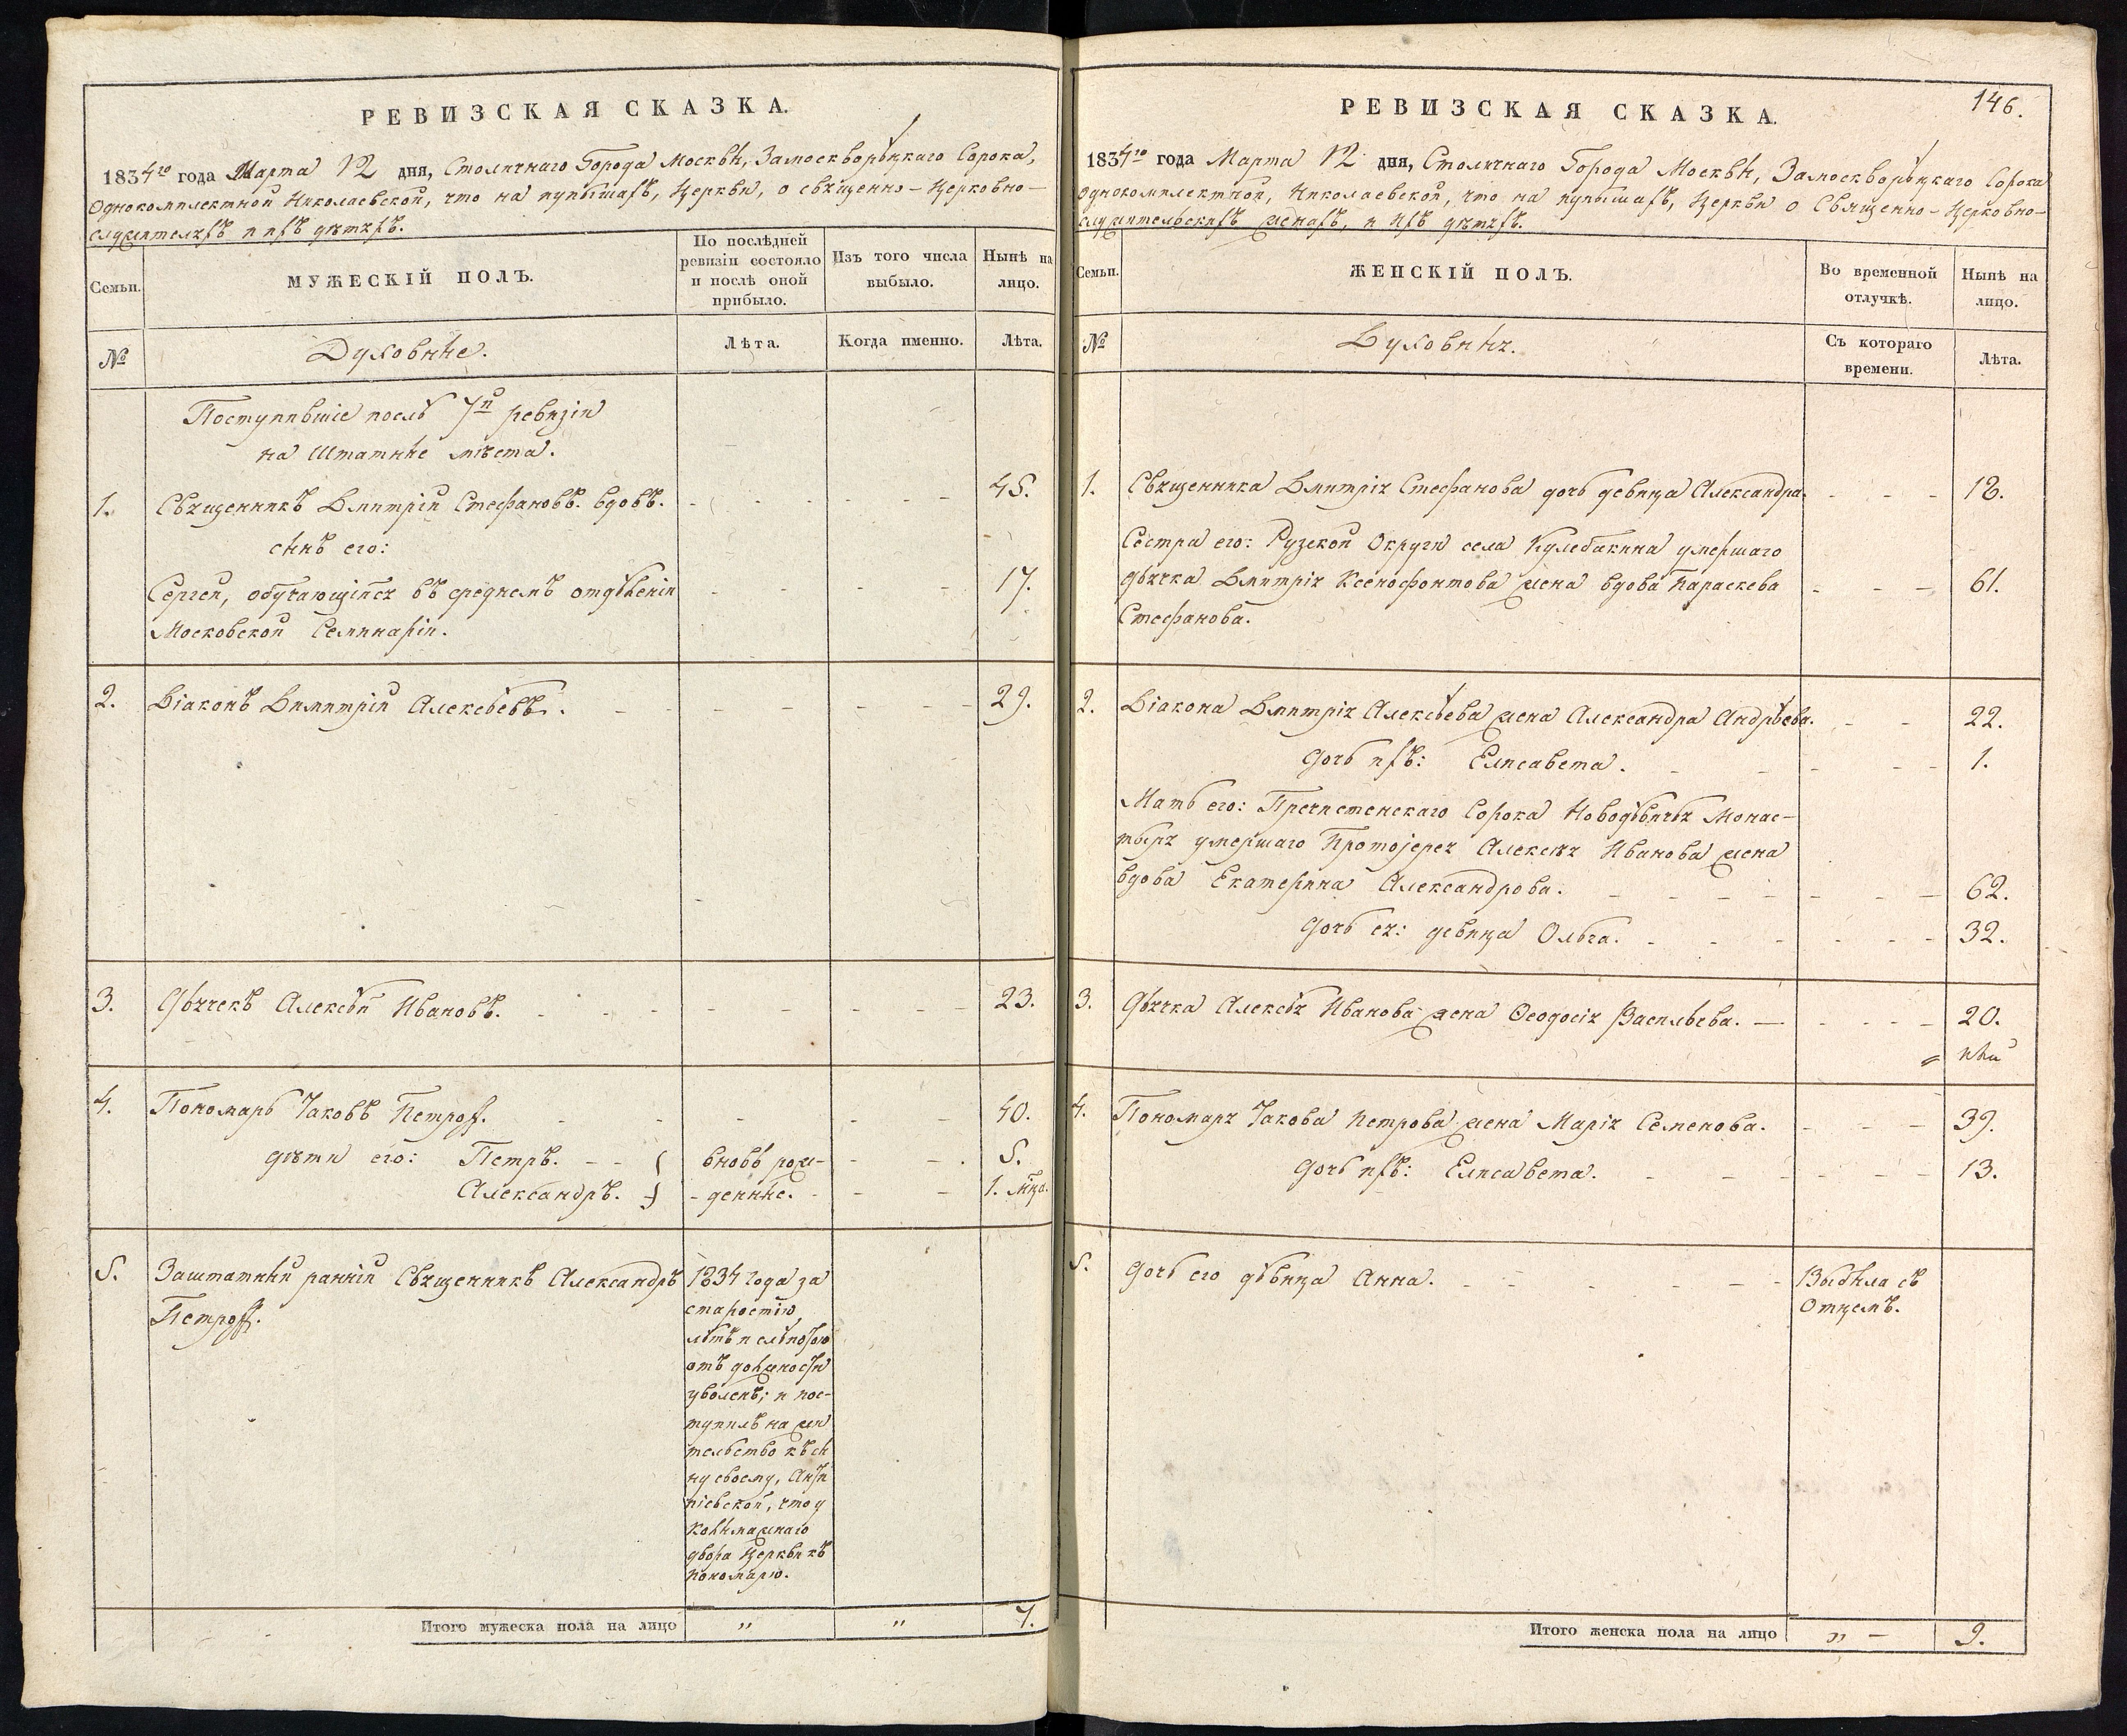 РЕВИЗСКАЯ СКАЗКА.
1834го года Марта 12 дня, Столичнаго Города Москвы, Замоскворѣцкаго Сорока,
Однокомплектной Николаевской, что на пупышахъ, Церкви, о священно-церковно-
служителяхъ и ихъ дѣтяхъ.
Семьи.
МУЖЕСКІЙ ПОЛЪ.
По послѣдней
ревизіи состояло
и послѣ оной
прибыло.
Изъ того числа
выбыло.
Нынѣ на
лицо.
№
Духовные.
Лѣта.
Когда именно.
Лѣта.
Поступившіе послѣ 7й ревизіи
на Штатные мѣста.
1. Священникъ Димитрій Стефановъ. вдовъ. 45.
сынъ его:
Сергей, обучающійся въ среднемъ отдѣленіи 17.
Московской Семинаріи.
2. Діаконъ Димитрій Алексѣевъ. 29.
3. Дьячекъ Алексѣй Ивановъ. 23.
4. Пономарь Іаковъ Петров. 40.
дѣти его: Петръ. вновь рож- 5.
Александръ. -денные. 1. мца.
5. Заштатный ранній Священникъ Александръ
Петров.
1834 года за
старостію
лѣтъ и слѣпотою
отъ должности
уволенъ; и пос-
тупилъ на жи
тельство къ сы
ну своему, Анти
піевской, что у
Колымажнаго
двора Церкви къ
пономарю.
Итого мужеска пола на лицо " " 7.
РЕВИЗСКАЯ СКАЗКА.
146.
1834го года Марта 12 дня, Столичнаго Города Москвы, Замоскворѣцкаго Сорока
Однокомплектной, Николаевской, что на пупышахъ, Церкви о Священно-Церковно-
служительскихъ женахъ, и ихъ дѣтяхъ.
Семьи.
ЖЕНСКІЙ ПОЛЪ.
Во временной
отлучкѣ.
Нынѣ на
лицо.
№
Духовныя.
Съ котораго
времени.
Лѣта.
1. Священника Димитрія Стефанова дочь девица Александра. 18.
Сестра его: Рузской Округи села Кулебакина умершаго
дьячка Димитрія Ксенофонтова жена вдова Параскева 61.
Стефанова.
2. Діакона Димитрія Алексѣева жена Александра Андрѣева. 22.
Дочь ихъ: Елисавета. 1.
Мать его: Пречистенскаго Сорока Новодѣвичья Монас-
тыря умершаго Протоіерея Алексѣя Иванова жена
вдова Екатерина Александрова. 62.
Дочь ея: девица Ольга. 32.
3. Дьячка Алексѣя Иванова жена Ѳеодосія Васильева. 20.
4. Пономаря Іакова Петрова жена Марія Семенова. 39.
Дочь ихъ: Елисавета. 13.
5. Дочь его дѣвица Анна.
Выбыла съ
Отцемъ.
Итого женска пола на лицо " — 9.